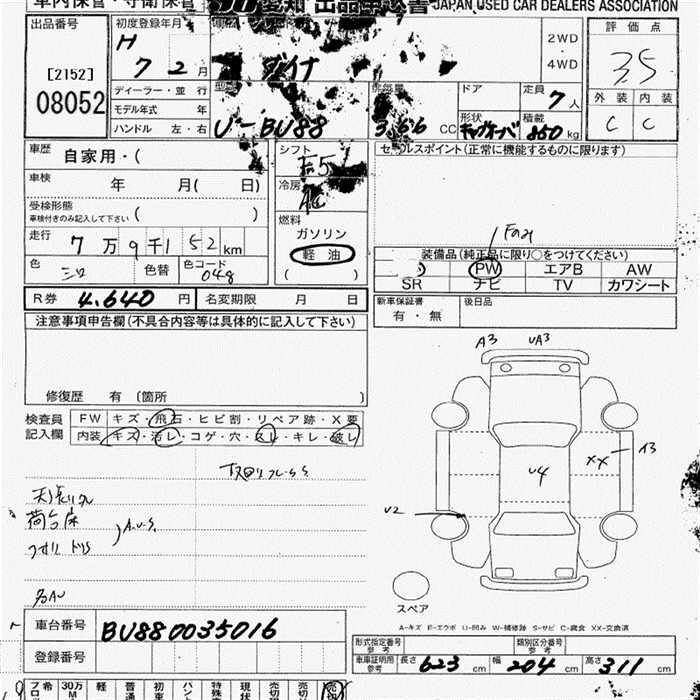 車内保管・守衛保管
愛知 出品申込書 JAPAN USED CAR DEALERS ASSOCIATION
出品番号
[2152]
08052
初度登録年月
H 7 2 月
ディーラー・並行
モデル年式 年
ハンドル 左・右
ダイナ
型式
U-BU88
排気量
3.66 CC
2WD
・
4WD
ドア
定員
7 人
形状
キャブオーバ
積載
850 kg
評価点
3.5
外装 内装
C C
車歴
自家用・(
車検
年 月( 日)
受検形態
車検付きのみ記入して下さい ( )
走行
7 万 9 千 152 km
色
シロ
色替
色コード
048
シフト
F5
冷房
AC
燃料
ガソリン
軽油
( )
セールスポイント(正常に機能するものに限ります)
装備品(純正品に限り○をつけてください)
PW エアB AW
SR ナビ TV カワシート
R券 4.640 円
名変期限 月 日
新車保証書
有・無
後日品
注意事項申告欄(不具合内容等は具体的に記入して下さい)
修復歴 有 〔箇所 〕
検査員
記入欄
FW キズ・飛石・ヒビ割・リペア跡・X要
内装 キズ・汚レ・コゲ・穴・スレ・キレ・破レ
荷台床
A.U.S.
A3 UA3
U4
XX
A3
U2
スペア
A-キズ E-エクボ U-凹み W-補修跡 S-サビ C-腐食 XX-交換済
車台番号
BU880035016
登録番号
形式指定番号
参考
類別区分番号
参考
車庫証明用
参考
長さ 623 cm 幅 204 cm 高さ 311 cm